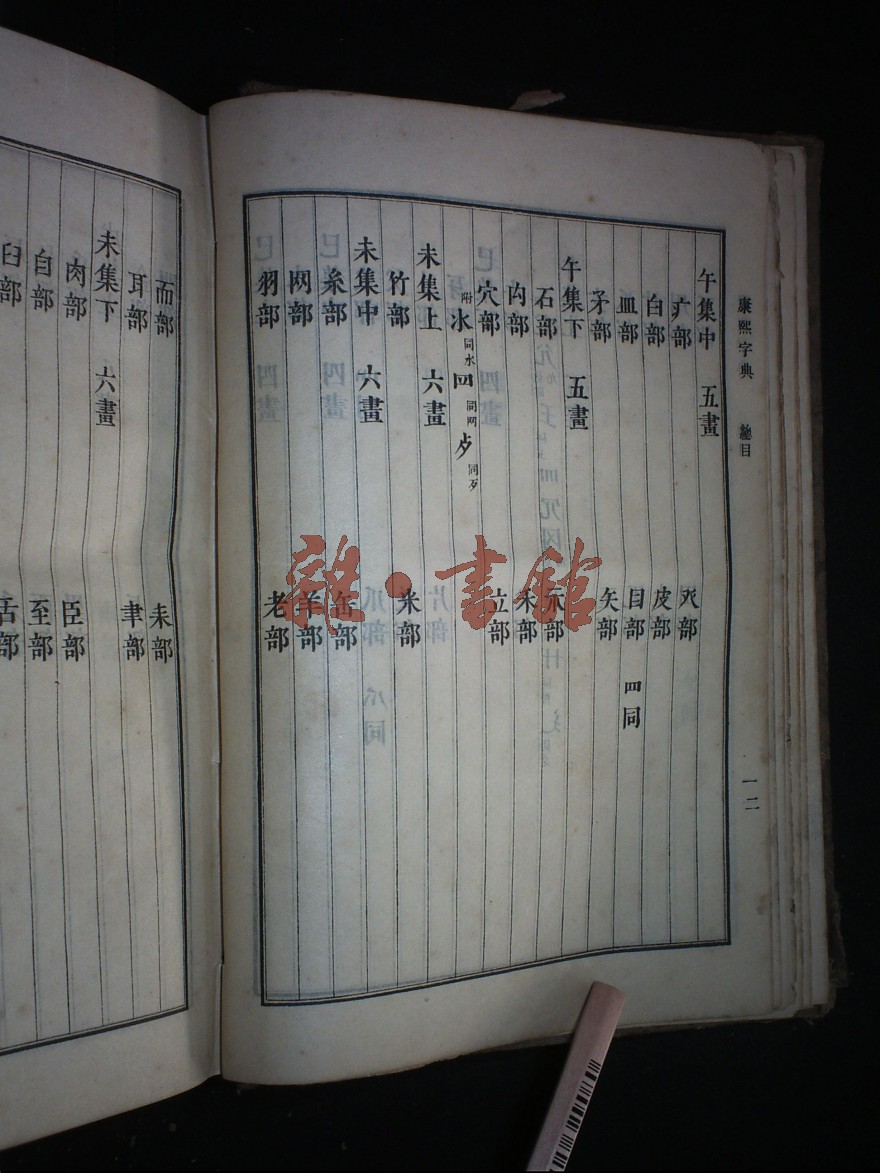 康熙字典 總目 一二
午集中 五畫
疒部 癶部
白部 皮部
皿部 目部 罒同
矛部 矢部
午集下 五畫
石部 示部
禸部 禾部
穴部 立部
附 氺 同水 罒 同网 歺 同歹
未集上 六畫
竹部 米部
未集中 六畫
糸部 缶部
网部 羊部
羽部 老部
而部 耒部
耳部 聿部
未集下 六畫
肉部 臣部
自部 至部
臼部 舌部
雜·書館